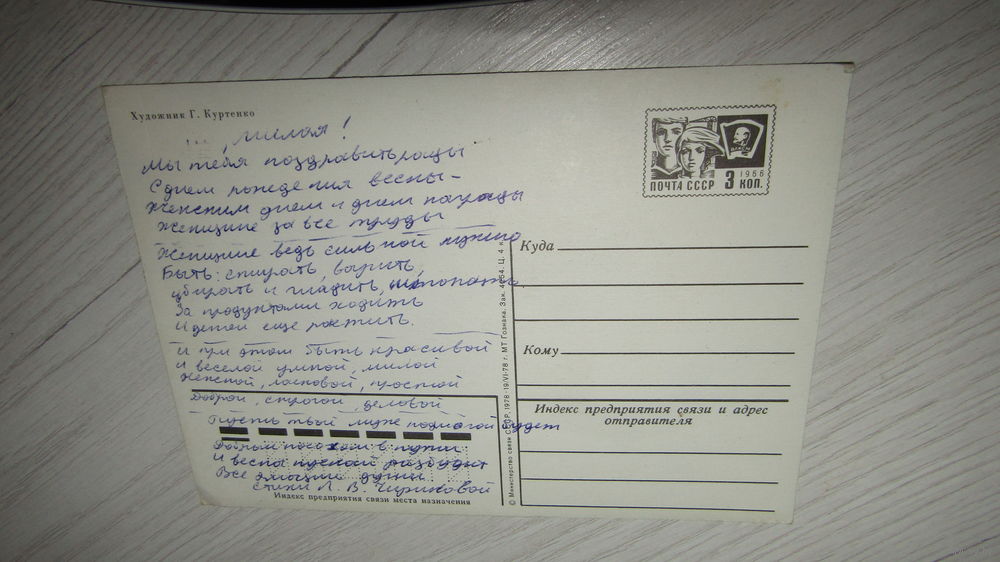 Художник Г. Куртенко
Милая!
Мы тебя поздравить рады
С днем рождения весны –
Женским днем и днем награды
Женщине за все труды
Женщине ведь сильной нужно
Быть: стирать, варить,
убирать и гладить, штопать
За продуктами ходить
И детей еще растить.
И при этом быть красивой
И веселой, умной, милой
Женской, ласковой, простой
Доброй, строгой, деловой
Пусть твой муж подмогой будет
Добрым посохом в пути
И весна пускай разбудит
Все эмоции души
стихи Л. В. Чириковой
Индекс предприятия связи места назначения
© Министерство связи СССР, 1978 19/VI-78 г. МТ Гознака. Зак. Ц. 4 к.
ПОЧТА СССР 3 КОП. 1966
ВЛКСМ
Куда
Кому
Индекс предприятия связи и адрес
отправителя